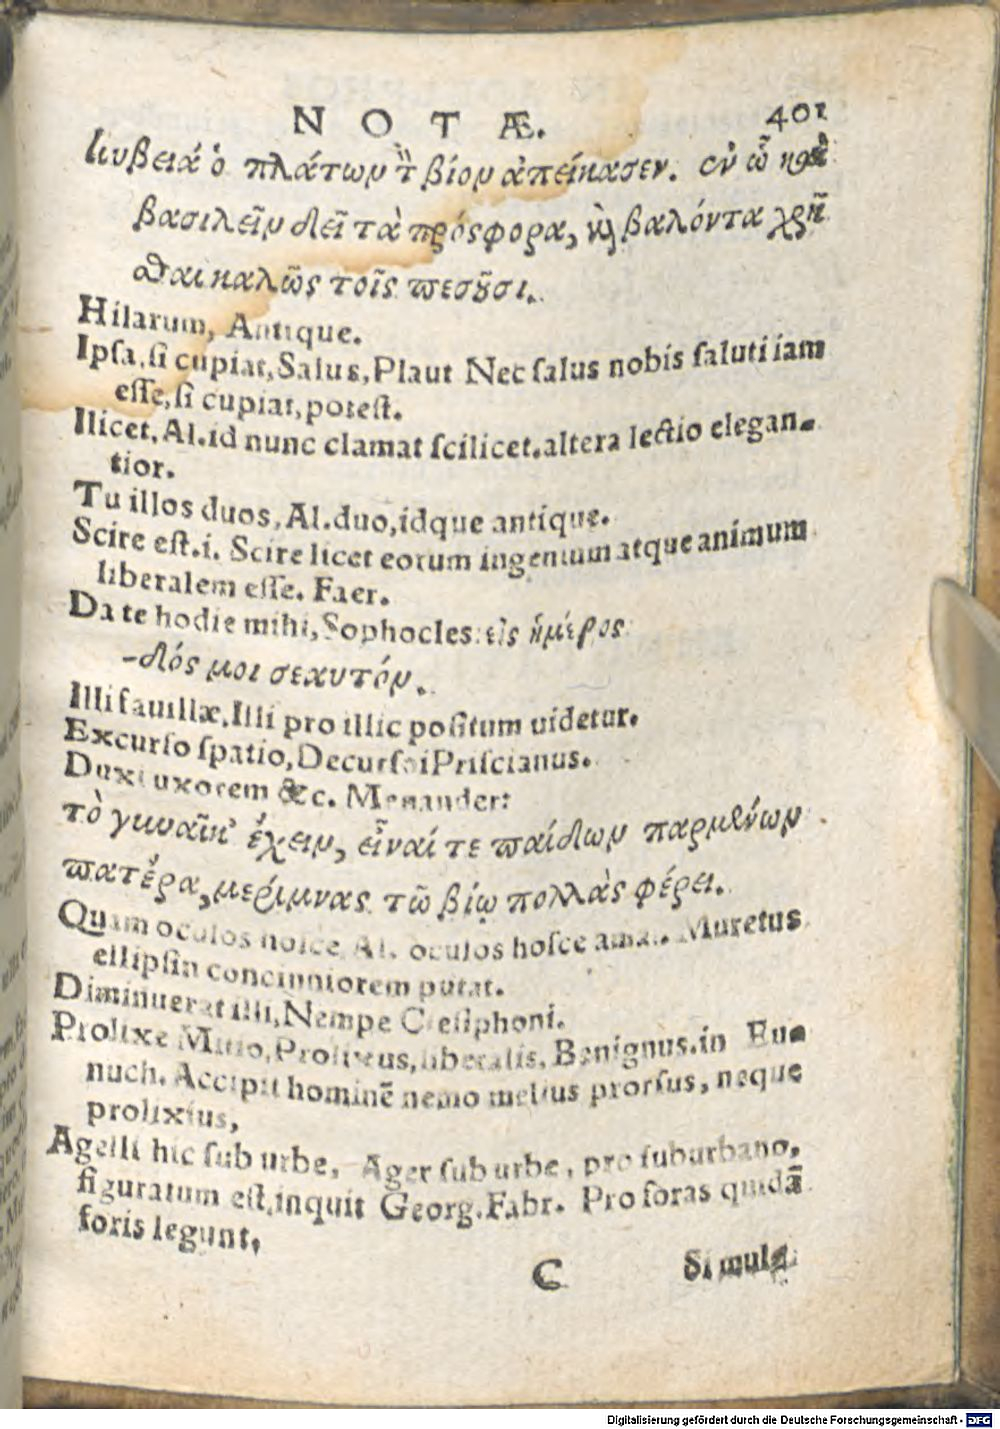 NOTÆ. 401
κυβείᾳ ὁ πλάτων τ̀ βίον ἀπείκασεν. ἐν ᾧ καὶ
βασιλεῖν δεῖ τὰ πρόσφορα, καὶ βαλόντα χρῆ
σθαι καλῶς τοῖς πεσοῦσι.
Hilarum, Antique.
Ipſa, ſi cupiat, Salus, Plaut Nec ſalus nobis ſaluti iam
eſſe, ſi cupiat, poteſt.
Ilicet, Al. id nunc clamat ſcilicet. altera lectio elegan-
tior.
Tu illos duos, Al. duo, idque antique.
Scire eſt. i. Scire licet eorum ingenium atque animum
liberalem eſſe. Faer.
Da te hodie mihi, Sophocles: εἰς ἡμέρος
-δός μοι σεαυτόν.
Illi fauillæ, Illi pro illic poſitum uidetur.
Excurſo ſpatio, Decurſoi Priſcianus.
Duxi uxorem &c. Menander:
τὸ γυναῖκ' ἔχειν, εἶναί τε παίδων παρμένων
πατέρα, μερίμνας τῷ βίῳ πολλὰς φέρει.
Quam oculos hoſce Al. oculos hoſce amat. Muretus
ellipſin concinniorem putat.
Diminuerat illi, Nempe Cteſiphoni.
Prolixe Mitio, Prolixus, liberalis, Benignus. in Eu-
nuch. Accipit hominē nemo melius prorſus, neque
prolixius,
Agelli hic ſub urbe, Ager ſub urbe, pro ſuburbano,
figuratum eſt, inquit Georg. Fabr. Pro foras quidā
foris legunt,
C Simulą